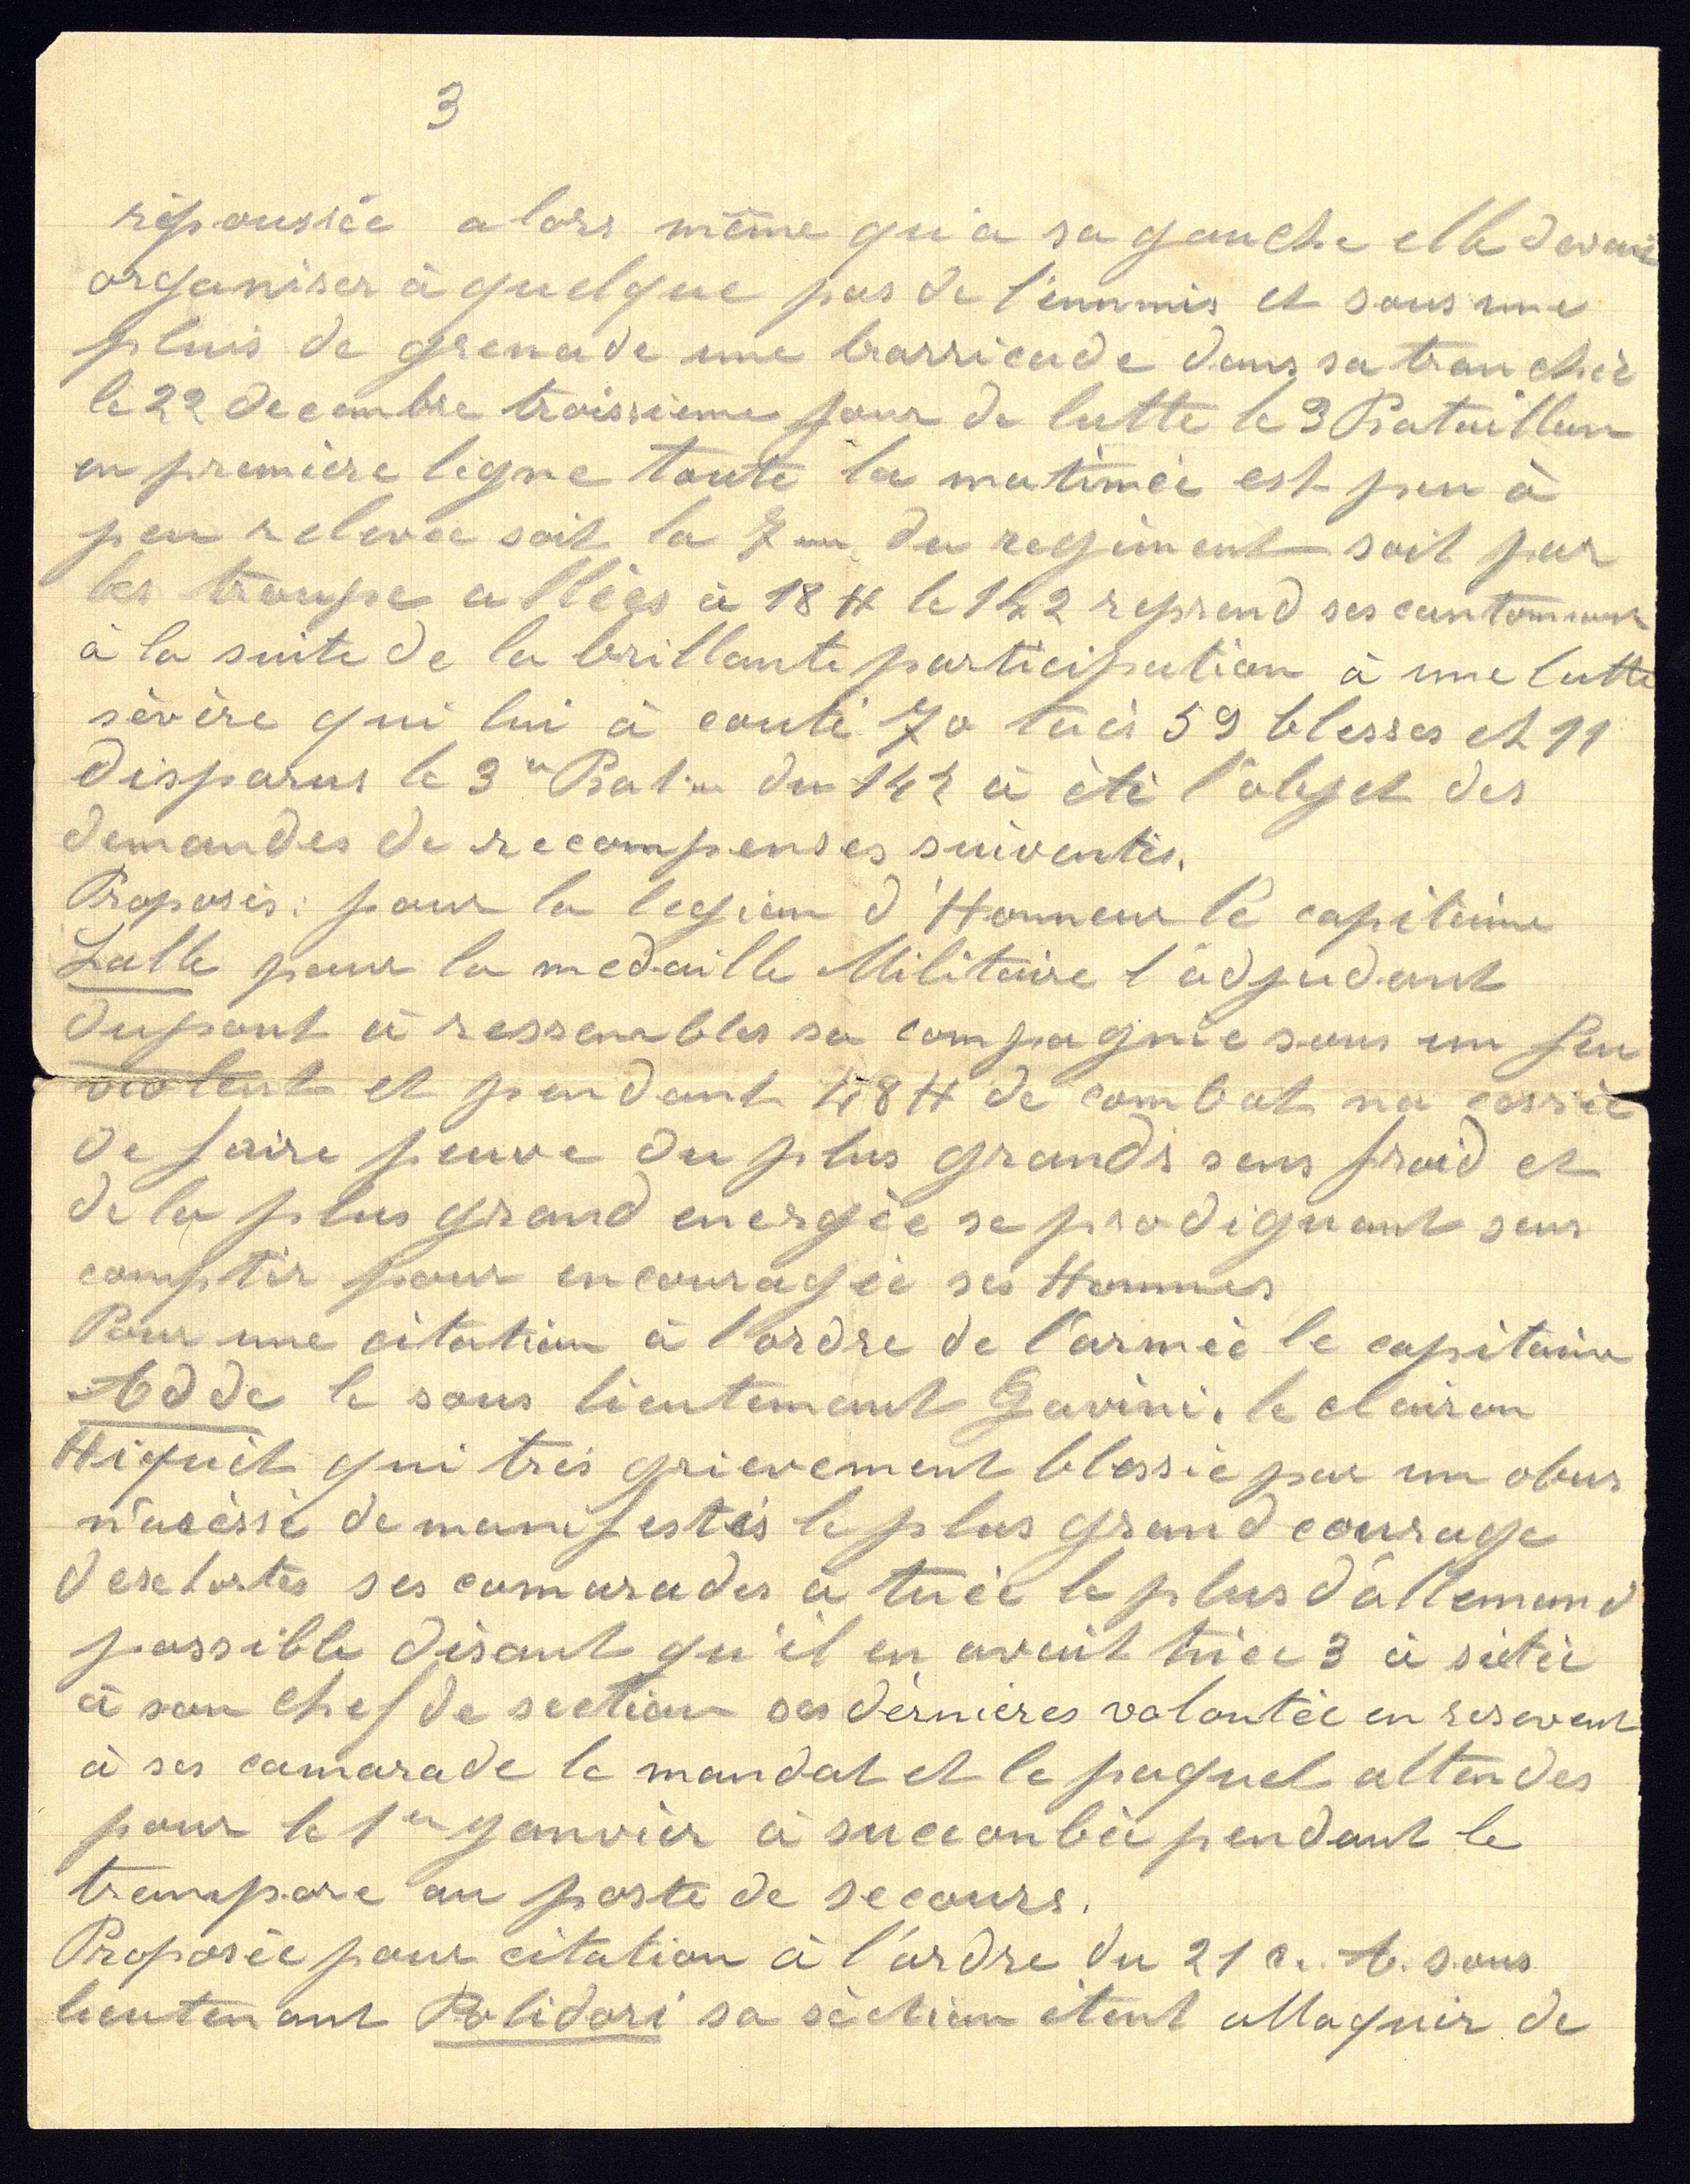 3
répoussée alors même qu'a sa gauche elle devait
organiser à quelque pas de l'ennmis et sous une
pluis de grenade une barricade dans sa tranchée
le 22 decembre troissieme jour de lutte le 3 Bataillon
en première ligne toute la matinée est peu à
peu relevée soit la 7me du regiment soit par
les troupe allées à 18 H le 142 reprend ses cantonnement
à la suite de la brillante participation à une lutte
sévère qui lui à couté 70 tués 59 blesses et 11
disparus le 3e Batn du 142 à été l'objet des
demandes de recompenses suiventes.
Proposés : pour la legion d'Honneur le capitaine
Lalle pour la medaille Militaire l'adjudant
dupont à ressembler sa compagnie sous un feu
violent et pendant 48 H de combat na cessée
de faire peuve du plus grands sens froid et
de la plus grand energée se prodiguant sens
compter pour encouragée ses Hommes
Pour une citation à l'ordre de l'armée le capitaine
Adde le sous lieutemant Gavini, le clairon
Hiquet qui trés grievement blessée par un obus
n'acéssé de manifestés le plus grand courage
dexhortes ses camarades à tuée le plus d'allemand
possible disant qu'il en avait tuée 3 à
à son chef de section ses dérnieres volontée en reservent
à ses camarade le mandat et le paquet attendes
pour le 1er ganvier à succonbée pendant le
transpore au poste de secours.
Proposée pour citation à l'ordre du 21 C. A. sous
lieutenant Polidori sa séction étent attaquer de